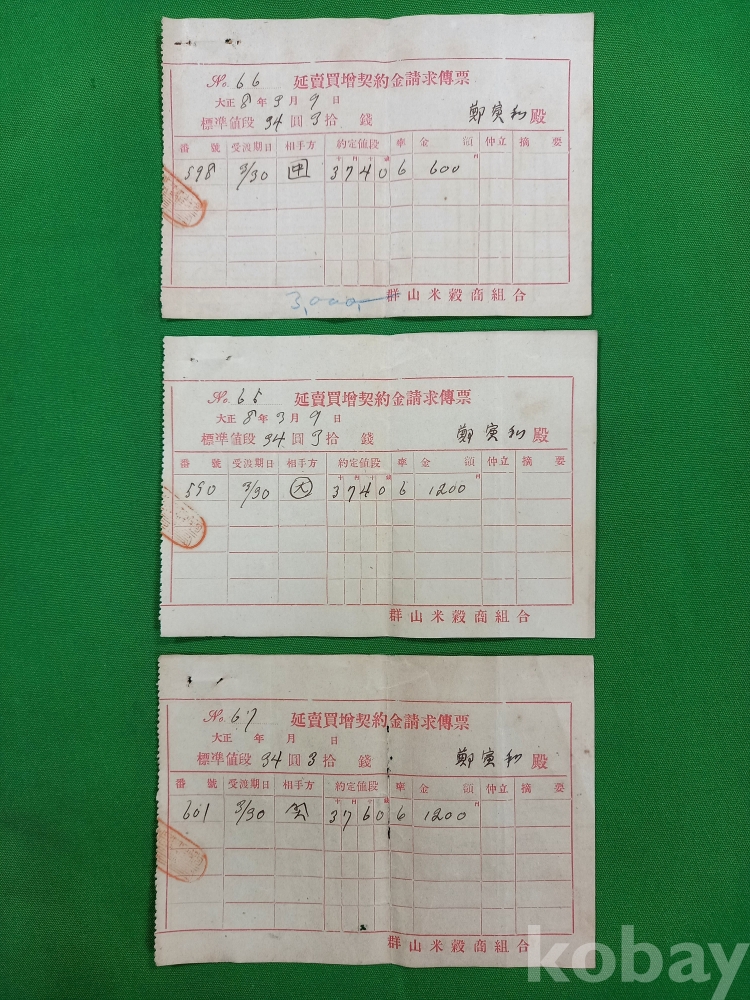 No. 66 延賣買增契約金請求傳票
大正 8 年 3 月 9 日
標準値段 34 圓 3 拾 錢 鄭寅和 殿
番號 受渡期日 相手方 約定値段 率 金額 仲立 摘要
十 円 十 錢 円
598 3/30 中 3740 6 600
3,000,-
群山米穀商組合
No. 65 延賣買增契約金請求傳票
大正 8 年 3 月 9 日
標準値段 34 圓 3 拾 錢 鄭寅和 殿
番號 受渡期日 相手方 約定値段 率 金額 仲立 摘要
十 円 十 錢 円
590 3/30 大 3740 6 1200
群山米穀商組合
No. 67 延賣買增契約金請求傳票
大正 年 月 日
標準値段 34 圓 3 拾 錢 鄭寅和 殿
番號 受渡期日 相手方 約定値段 率 金額 仲立 摘要
十 円 十 錢 円
601 3/30 3760 6 1200
群山米穀商組合
kobay